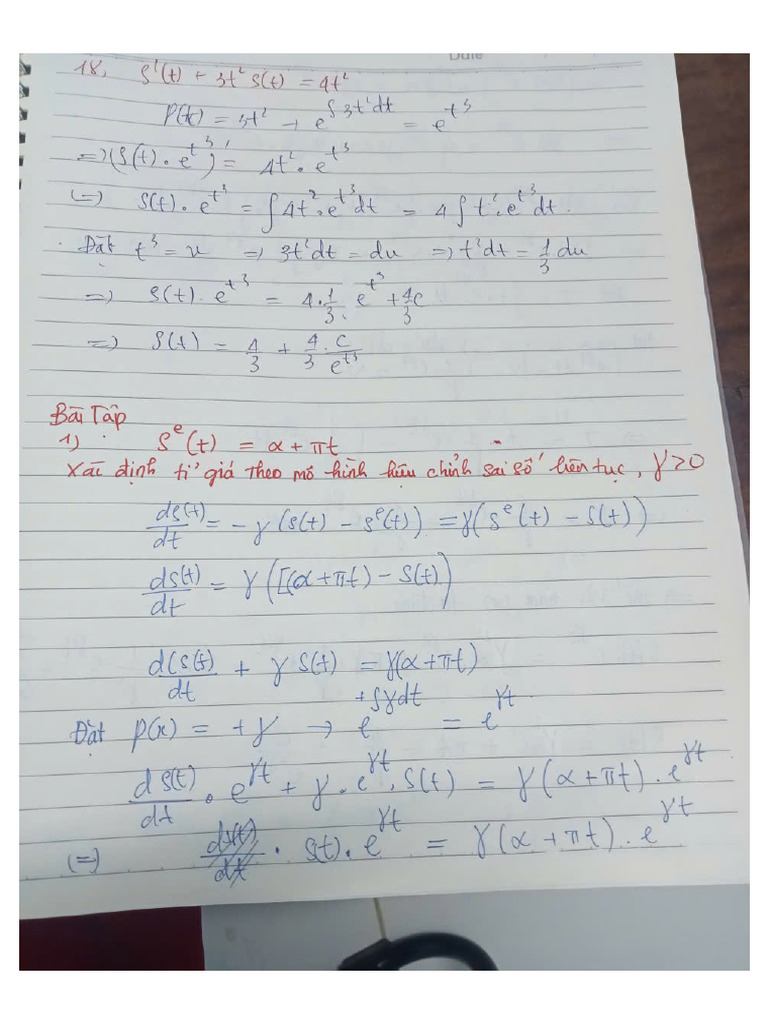 Date
18, S'(t) + 3t² S(t) = 4t²
P(x) = 3t² → e^{∫3t²dt} = e^{t³}
=> (S(t) · e^{t³})' = 4t² · e^{t³}
(=) S(t) · e^{t³} = ∫4t² · e^{t³}dt = 4∫t² · e^{t³}dt.
. Đặt t³ = u => 3t²dt = du => t²dt = 1/3 du
=> S(t) · e^{t³} = 4 · 1/3 . e^{t³} + 4/3 C
=> S(t) = 4/3 + 4/3 · C/e^{t³}
Bài Tập
1) S^e(t) = α + πt
Xác định tỉ giá theo mô hình hiệu chỉnh sai số liên tục, γ>0
dS(t)/dt = -γ(S(t) - S^e(t)) = γ(S^e(t) - S(t))
dS(t)/dt = γ([(α+πt) - S(t))
d(S(t)/dt + γ S(t) = γ(α+πt)
Đặt P(x) = +γ → e^{+∫γdt} = e^{γt}
dS(t)/dt · e^{γt} + γ · e^{γt} . S(t) = γ(α+πt) . e^{γt}
(=) dS(t)/dt · S(t) · e^{γt} = γ(α+πt) . e^{γt}